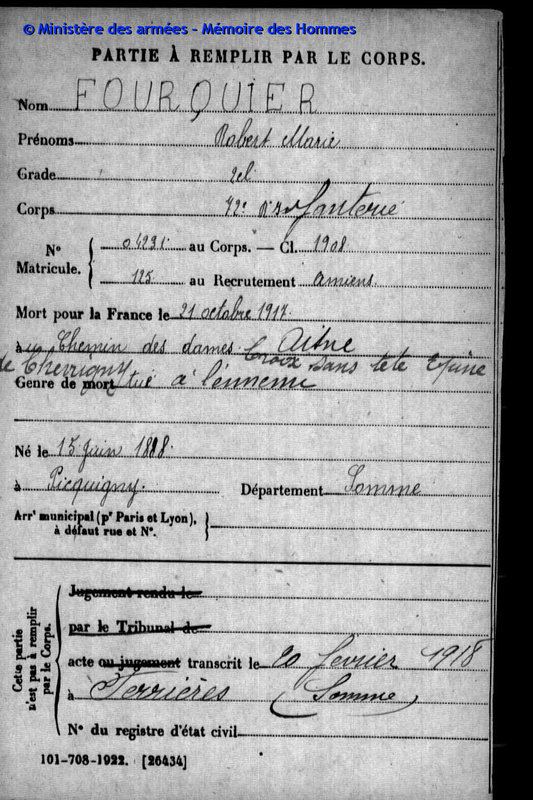 © Ministère des armées - Mémoire des Hommes
PARTIE À REMPLIR PAR LE CORPS.
Nom FOURQUIER
Prénoms Robert Marie
Grade
Corps 72e Infanterie
N° Matricule. 04291 au Corps. — Cl. 1908
125 au Recrutement Amiens
Mort pour la France le 21 octobre 1917
à Chemin des dames Aisne
de Chevrigny Croix sans tête
Genre de mort tué à l'ennemi
Né le 13 juin 1888
à Picquigny. Département Somme
Arrt municipal (pr Paris et Lyon),
à défaut rue et N°.
Cette partie n'est pas à remplir par le Corps.
Jugement rendu le
par le Tribunal de
acte ou jugement transcrit le 20 février 1918
à Ferrières (Somme)
N° du registre d'état civil
101-708-1922. [26434]